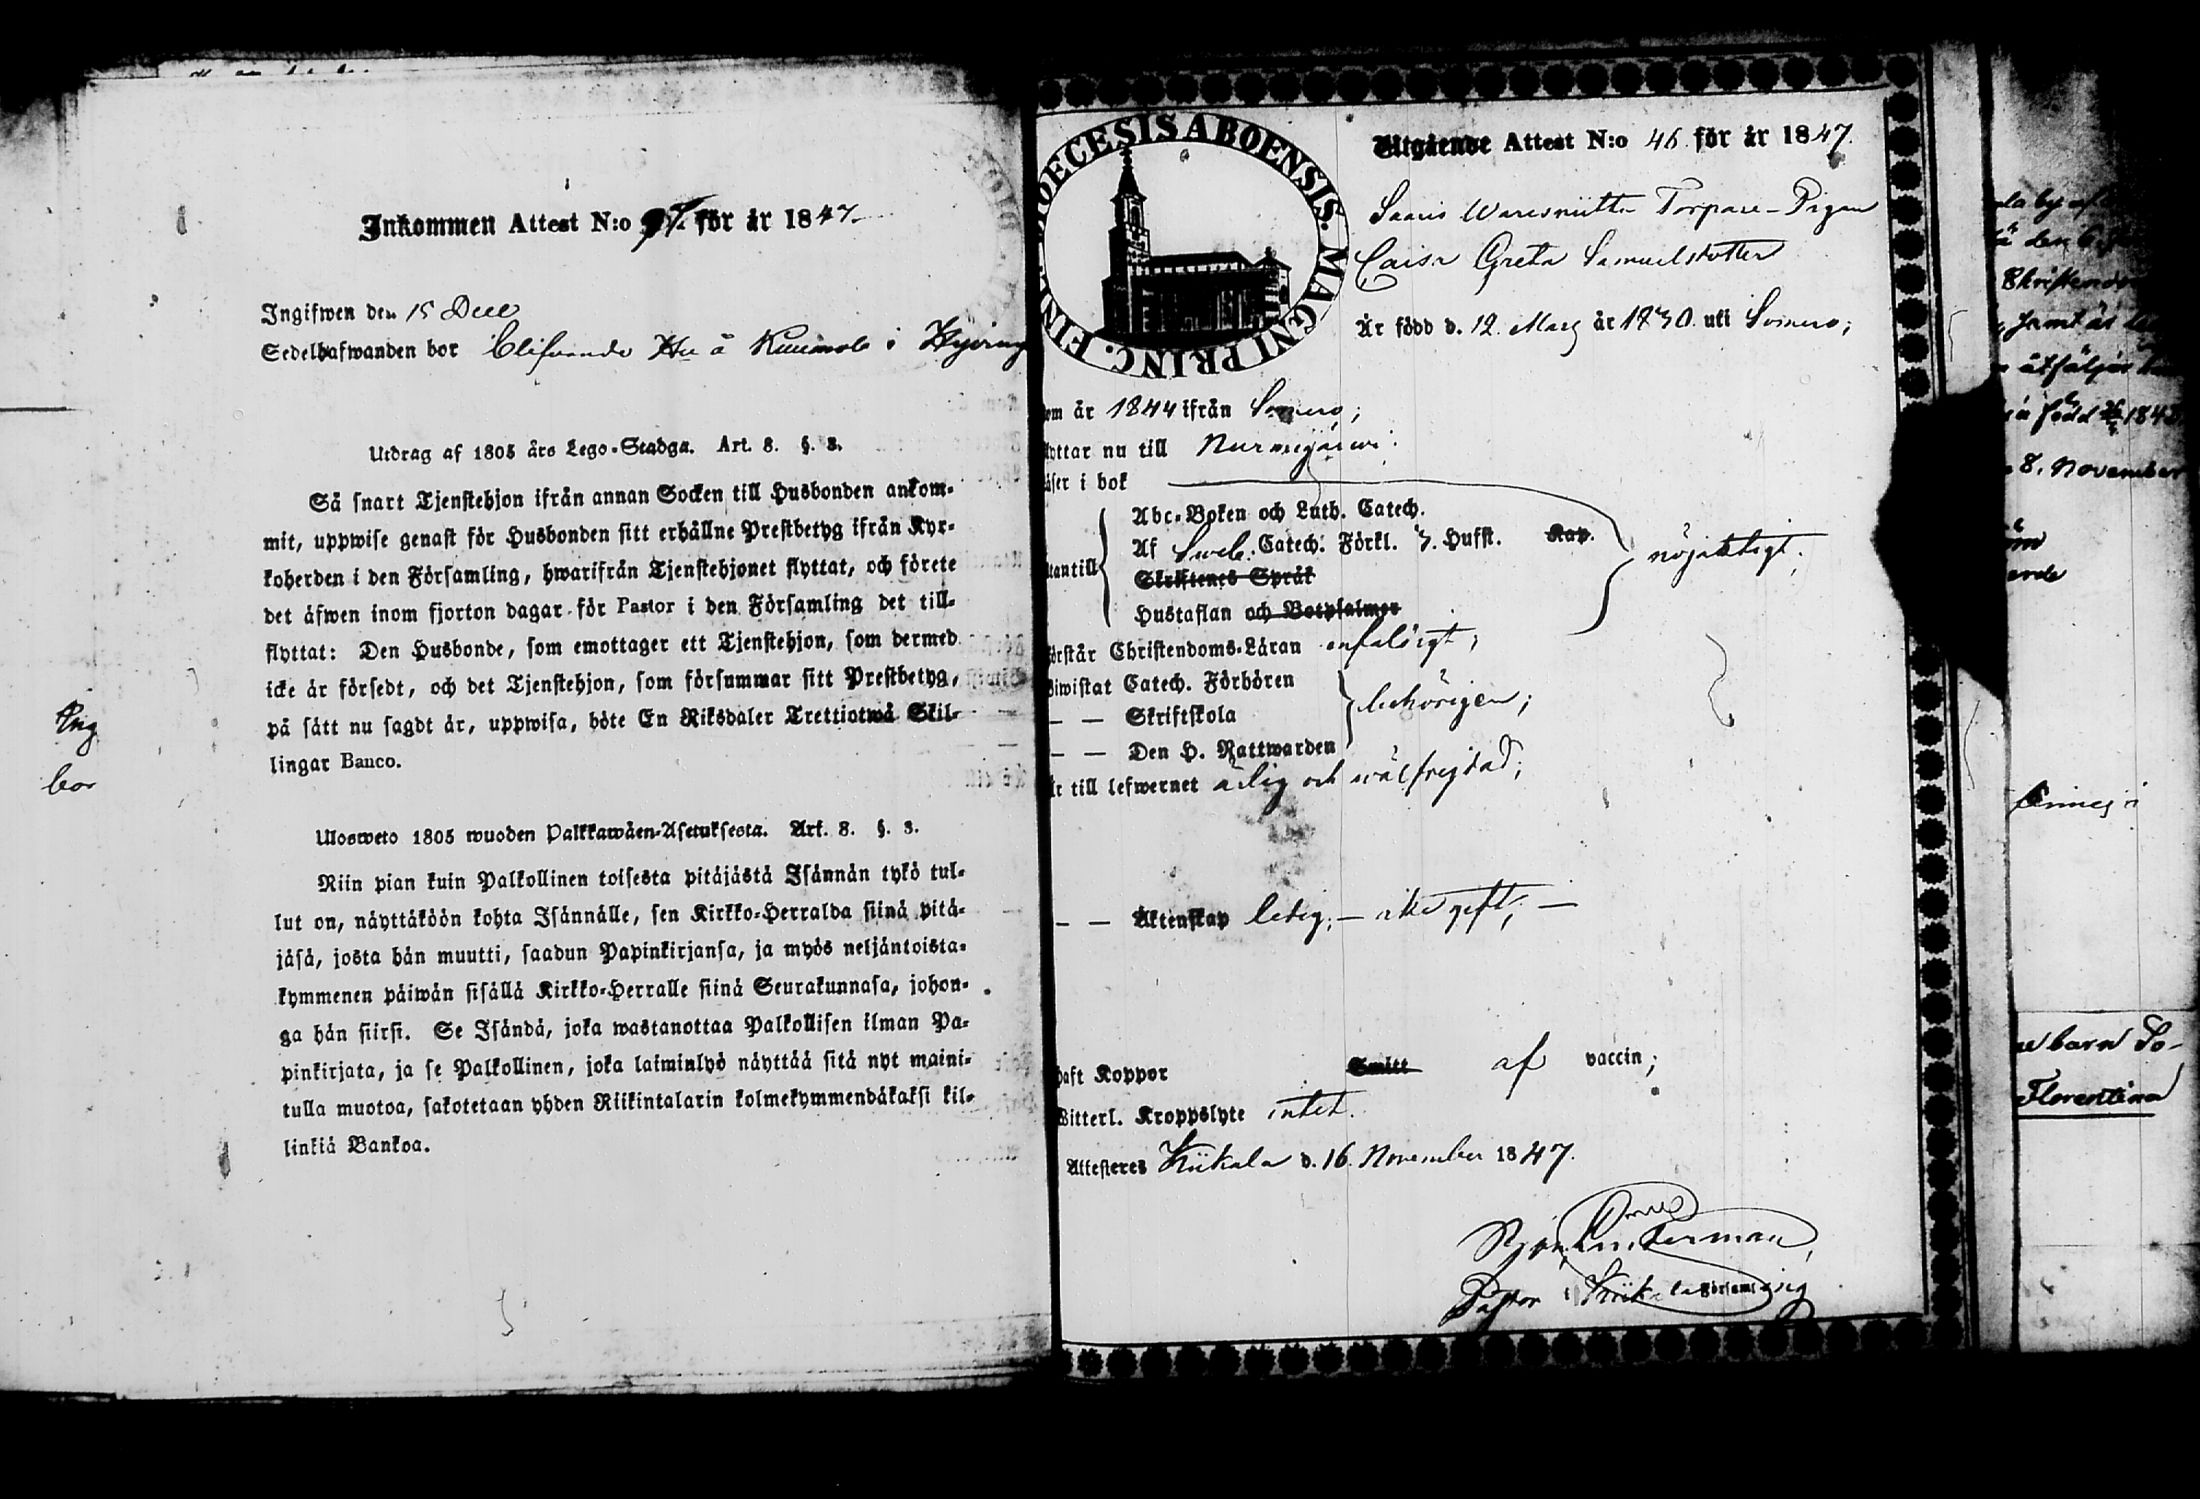 Inkommen Attest N:o 97. för år 1847.
Ingifwen den 15 Dec
Sedelhafwanden bor blifvande Hu å i
Utdrag af 1805 års Lego-Stadga. Art. 8. §. 3.
Så snart Tjenstehjon ifrån annan Socken till Husbonden ankom-
mit, uppwise genast för Husbonden sitt erhållne Prestbetyg ifrån Kyr-
koherden i den Församling, hwarifrån Tjenstehjonet flyttat, och förete
det äfwen inom fjorton dagar för Pastor i den Församling det till-
flyttat: Den Husbonde, som emottager ett Tjenstehjon, som dermed
icke är försedt, och det Tjenstehjon, som försummar sitt Prestbetyg,
på sätt nu sagdt är, uppwisa, böte En Riksdaler Trettiotwå Skil-
lingar Banco.
Ulosweto 1805 wuoden Palkkawäen-Asetuksesta. Art. 8. §. 3.
Niin pian kuin Palkollinen toisesta pitäjästä Isännän tykö tul-
lut on, näyttäköön kohta Isännälle, sen Kirkko-Herralda siinä pitä-
jäsä, josta hän muutti, saadun Papinkirjansa, ja myös neljäntoista-
kymmenen päiwän sisällä Kirkko-Herralle siinä Seurakunnasa, johon-
ga hän siirsi. Se Isändä, joka wastanottaa Palkollisen ilman Pa-
pinkirjata, ja se Palkollinen, joka laiminlyö näyttää sitä nyt maini-
tulla muotoa, sakotetaan yhden Riikintalarin kolmekymmendäkaksi kil-
linkiä Bankoa.
Ing
bor
DIOECESIS ABOENSIS. MAGNI PRINC. FINL.
Utgående Attest N:o 46 för år 1847.
Saaris Waresniitta Torpare-Pigan
Caisa Greta Samuelsdotter
Är född d. 12. Mars år 1830. uti Somero;
om år 1844 ifrån Somero;
lyttar nu till Nurmijärwi:
äser i bok
Abc-Boken och Luth. Catech.
Af Sweb. Catech. Förkl. 3. Hufst. Kap.
tantill
Skriftenes Språk
Hustaflan och Botpsalmer
nöjaktigt;
örstår Christendoms-Läran enfaldigt;
Biwistat Catech. Förhören
— — Skriftskola
behörigen;
— — Den H. Nattwarden
är till lefwernet ärlig och wälfrejdad;
— — Äktenskap ledig; — icke gift; —
haft Koppor Smitt af vaccin;
Witterl. Kroppslyte intet.
Attesteres Kiikala d. 16. November 1847.
Pastor i Kiikala Församling
la by af
den 6
Christendom
samt är
åtföljer
född 1842
8. November
arde
finnes i
barn So-
Florentina